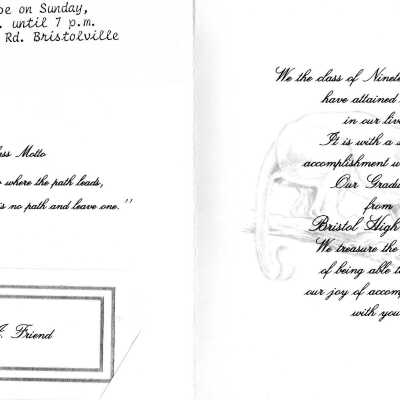 be on Sunday,
. until 7 p.m.
Rd. Bristolville
ss Motto
where the path leads,
is no path and leave one."
Friend
We the class of
have attained
in our
It is with a
accomplishment
Our
from
Bristol High
We treasure the
of being able
our joy of
with you